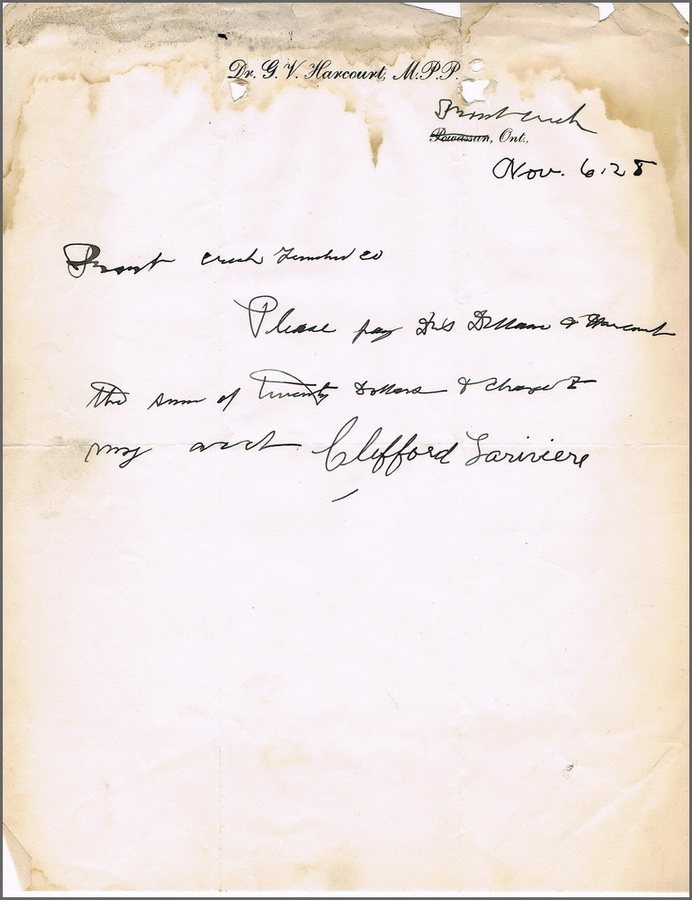 Dr. G. V. Harcourt, M.P.P.
Trout Creek
Powassan, Ont.
Nov. 6.28
Trout Creek Lumber Co
Please pay Drs Dillane & Harcourt
the sum of Twenty Dollars & charge to
my acct Clifford Lariviere